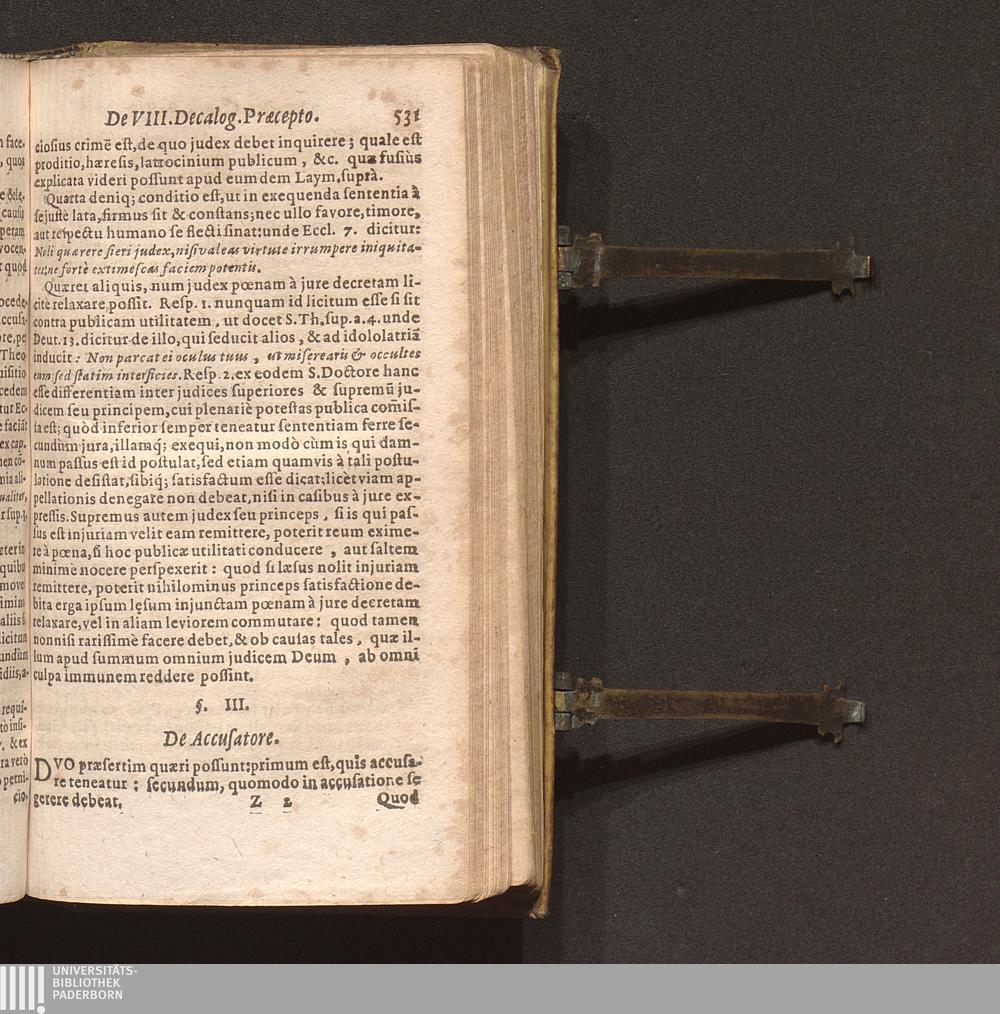 De VIII. Decalog. Præcepto. 531
ciosius crimē est, de quo judex debet inquirere; quale est
proditio, hæresis, latrocinium publicum, &c. quæ fusiùs
explicata videri possunt apud eumdem Laym. suprà.
Quarta deniq; conditio est, ut in exequenda sententia à
se justè lata, firmus sit & constans; nec ullo favore, timore,
aut respectu humano se flecti sinat: unde Eccl. 7. dicitur:
Noli quærere fieri judex, nisi valeas virtute irrumpere iniquita-
tes; ne fortè extimescas faciem potentis.
Quæret aliquis, num judex pœnam à jure decretam li-
citè relaxare possit. Resp. 1. nunquam id licitum esse si sit
contra publicam utilitatem, ut docet S. Th. sup. a. 4. unde
Deut. 13. dicitur de illo, qui seducit alios, & ad idololatriā
inducit: Non parcat ei oculus tuus, ut miserearis & occultes
eum: sed statim interficies. Resp. 2. ex eodem S. Doctore hanc
esse differentiam inter judices superiores & supremū ju-
dicem seu principem, cui plenariè potestas publica com̄is-
sa est; quòd inferior semper teneatur sententiam ferre se-
cundùm jura, illamq́; exequi, non modò cùm is qui dam-
num passus est id postulat, sed etiam quamvis à tali postu-
latione desistat, sibiq́; satisfactum esse dicat: licèt viam ap-
pellationis denegare non debeat, nisi in casibus à jure ex-
pressis. Supremus autem judex seu princeps, si is qui pas-
sus est injuriam velit eam remittere, poterit reum exime-
re à pœna, si hoc publicæ utilitati conducere, aut saltem
minimè nocere perspexerit: quod si læsus nolit injuriam
remittere, poterit nihilominus princeps satisfactione de-
bita erga ipsum lęsum injunctam pœnam à jure decretam
relaxare, vel in aliam leviorem commutare: quod tamen
nonnisi rarissimè facere debet, & ob causas tales, quæ il-
lum apud summum omnium judicem Deum, ab omni
culpa immunem reddere possint.
§. III.
De Accusatore.
DVO præsertim quæri possunt: primum est, quis accusa-
re teneatur: secundum, quomodo in accusatione se
gerere debeat. Z 2 Quod
UNIVERSITÄTS-
BIBLIOTHEK
PADERBORN